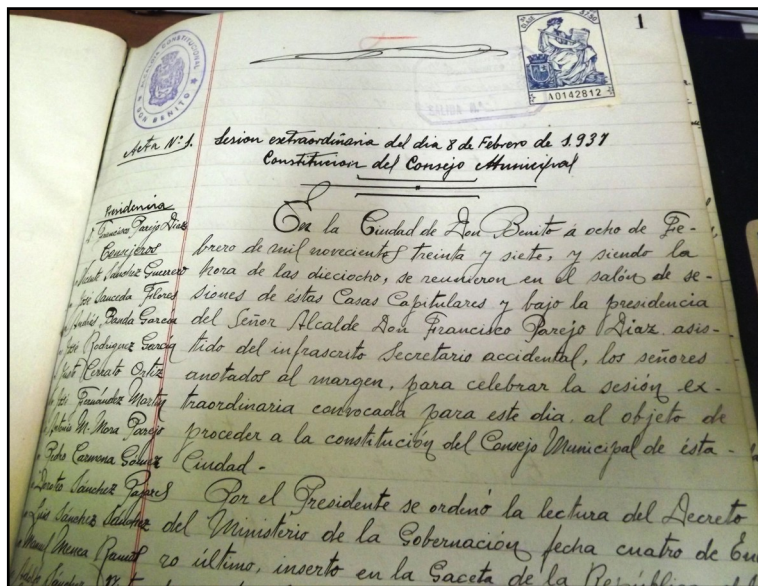 1
ALCALDIA CONSTITUCIONAL
DON BENITO
A0142812
Acta Nº 1. Sesion extraordinaria del dia 8 de Febrero de 1.937
Constitucion del Consejo Municipal
Presidencia
D. Francisco Parejo Diaz
Consejeros
Vicente Sánchez Guerrero
José Sauceda Flores
Andrés Banda García
José Rodriguez García
Justo Cerrato Ortiz
José Fernández Martín
Antonio M. Mora Parejo
Pedro Carmona Gómez
Doroteo Sánchez Pajares
Luis Sánchez Sánchez
Manuel Menea
Sánchez
En la Ciudad de Don Benito á ocho de Fe-
brero de mil novecientos treinta y siete, y siendo la
hora de las dieciocho, se reunieron en el salón de se-
siones de éstas Casas Capitulares y bajo la presidencia
del Señor Alcalde Don Francisco Parejo Diaz. asis-
tido del infrascrito Secretario accidental, los señores
anotados al margen, para celebrar la sesión ex-
traordinaria convocada para este dia, al objeto de
proceder a la constitución del Consejo Municipal de ésta
Ciudad.-
Por el Presidente se ordenó la lectura del Decreto
del Ministerio de la Gobernación fecha cuatro de Ene
ro último, inserto en la Gaceta de la República